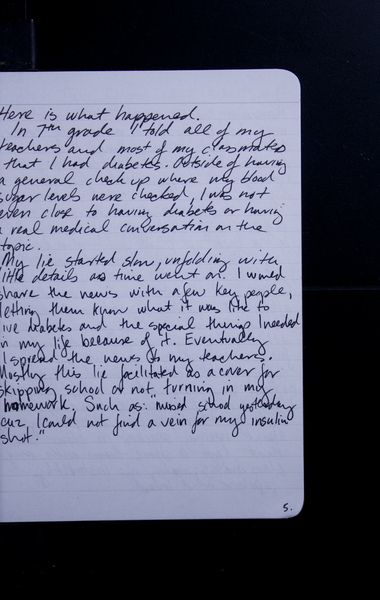 Here is what happened.
In 7th grade I told all of my
teachers and most of my classmates
that I had diabetes. Outside of having
a general check up where my blood
sugar levels were checked, I was not
even close to having diabetes or having
a real medical conversation on the
topic.
My lie started slow, unfolding with
little details as time went on. I would
share the news with a few key people,
letting them know what it was like to
live diabetes and the special things I needed
in my life because of it. Eventually
I spread the news to my teachers.
Mostly this lie facilitated as a cover for
skipping school or not turning in my
homework. Such as: "missed school yesterday
cuz I could not find a vein for my insulin
shot."
5.